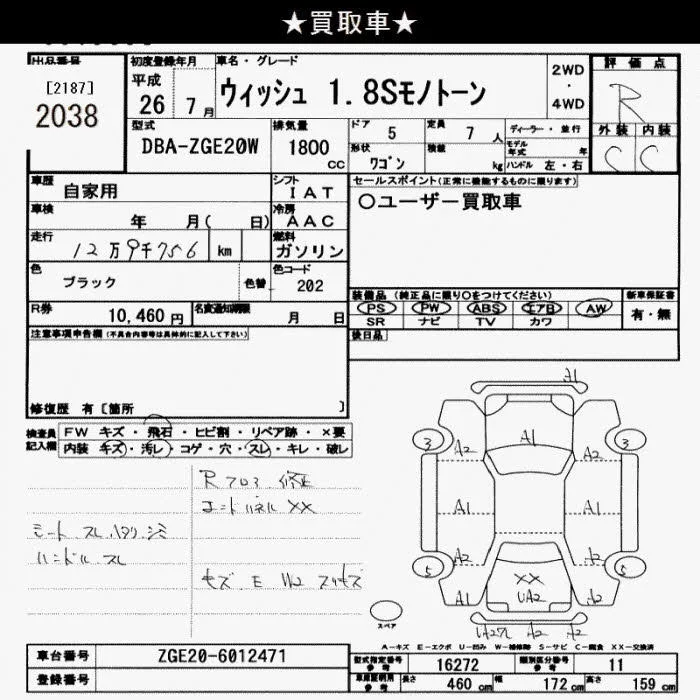 ★買取車★
出品番号
[2187]
2038
初度登録年月
平成
26 7月
車名・グレード
ウィッシュ 1.8Sモノトーン
2WD
・
4WD
評価点
R
外装 内装
C C
型式
DBA-ZGE20W
排気量
1800
cc
ドア 5
定員 7 人
形状 ワゴン
積載 kg
ディーラー・並行
モデル年式 年
ハンドル 左・右
車歴 自家用
シフト
IAT
セールスポイント(正常に機能するものに限ります)
〇ユーザー買取車
車検 年 月( 日)
冷房
AAC
走行 12万9千756 km
燃料
ガソリン
色 ブラック
色替
色コード
202
装備品 (純正品に限り〇をつけてください)
PS PW ABS エアB AW
SR ナビ TV カワ
新車保証書
有・無
R券 10,460円
名変通知期限 月 日
後日品
注意事項申告欄(不具合内容等は具体的に記入して下さい)
修復歴 有〔箇所 〕
検査員記入欄
FW キズ・飛石・ヒビ割・リペア跡・×要
内装 キズ・汚レ・コゲ・穴・スレ・キレ・破レ
Rフロア 修正
エンドパネル XX
シート スレ ハタリ シミ
ハンドル スレ
A1
3 A2 A1 A2 3
A1 A1
5 A2 A2 5
XX
A1 UA2 A2
A2 A2
スペア
A-キズ E-エクボ U-凹み W-補修跡 S-サビ C-腐食 XX-交換済
車台番号 ZGE20-6012471
登録番号
型式指定番号
参考
16272
類別区分番号
参考
11
車庫証明用
参考
長さ 460cm
幅 172cm
高さ 159cm